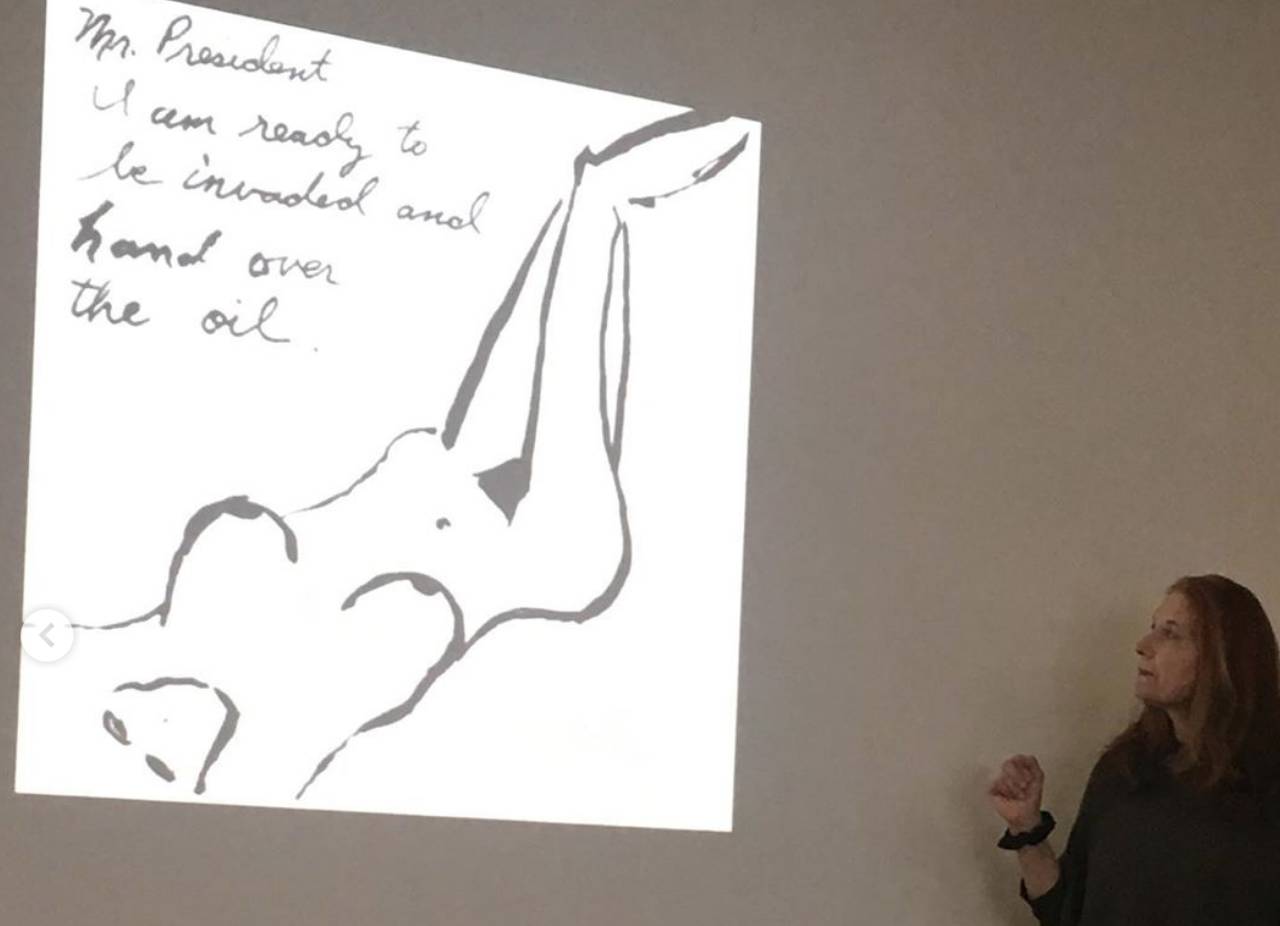 Mr. President
I am ready to
be invaded and
hand over
the oil.